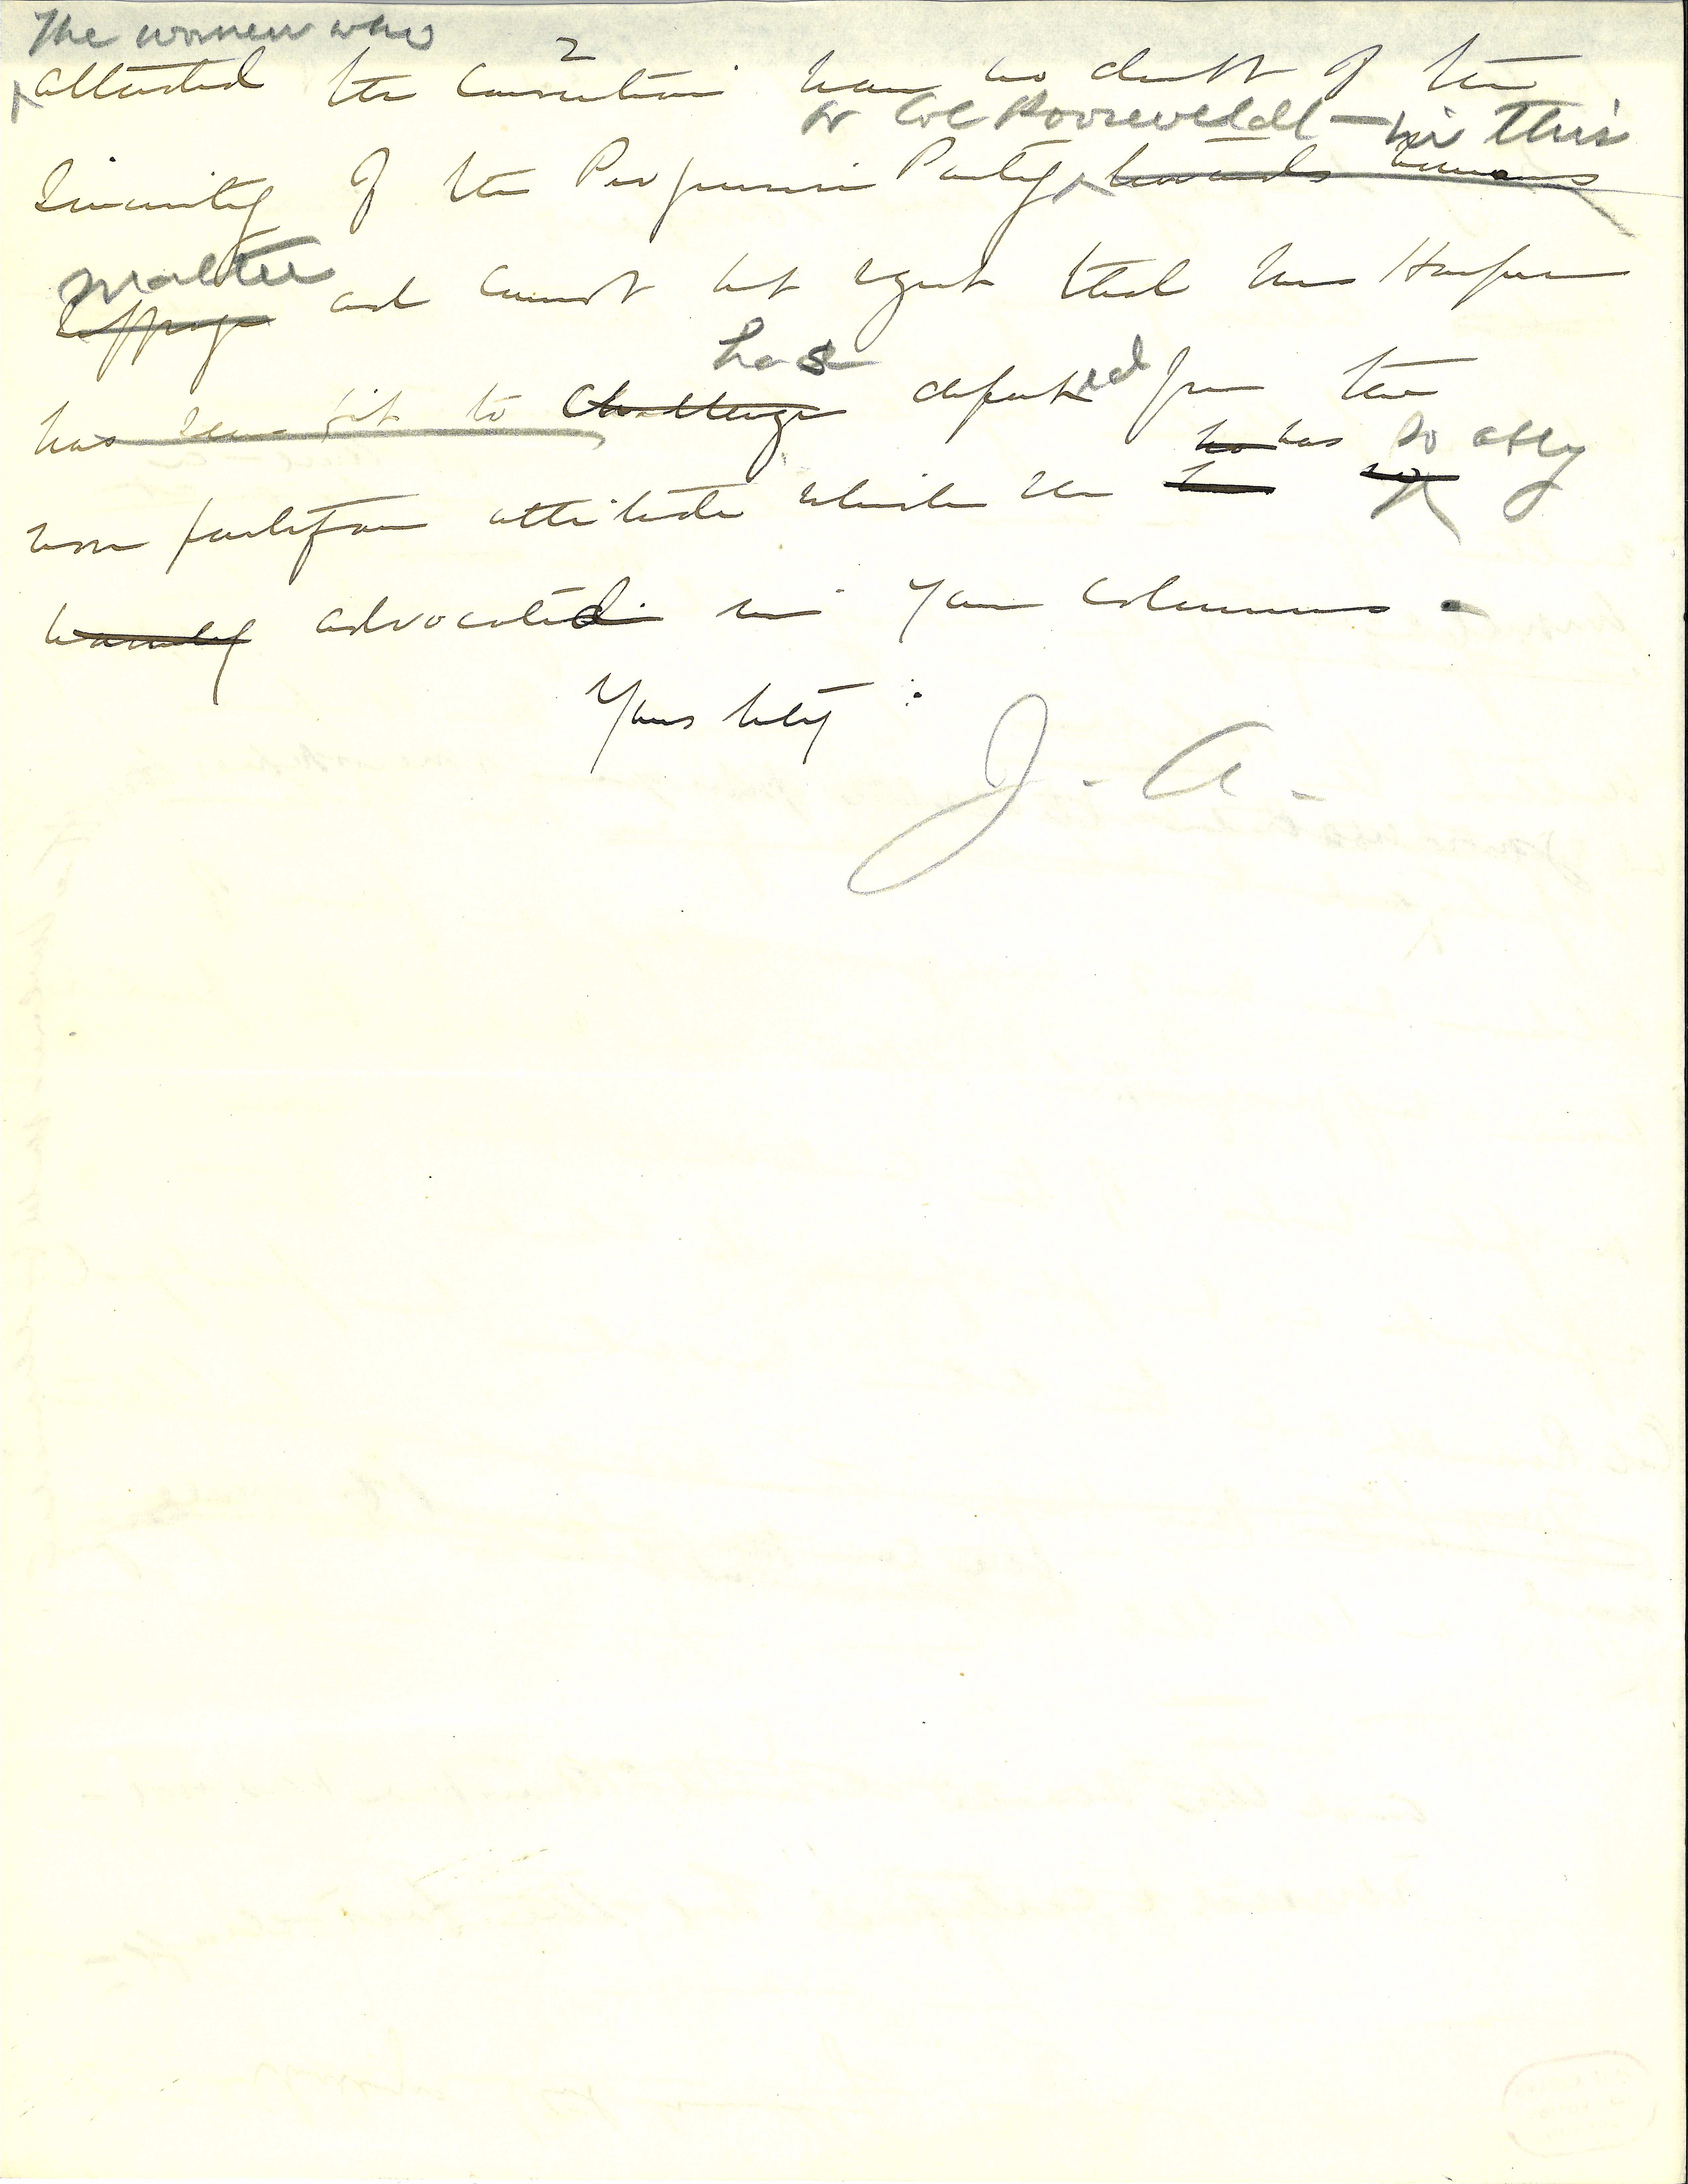 The women who
2
attended the Convention have no doubt of the
or Col Rooseveldt — in this
Sincerity of the Progressive Party towards womans
matter
Suffrage and cannot but regret that Mrs Harper
has
has seen fit to Challenge departed from the
ho has so ably
non partisan attitude which she h so
warmly advocated in your Columns.
Yours truly :
J. A.